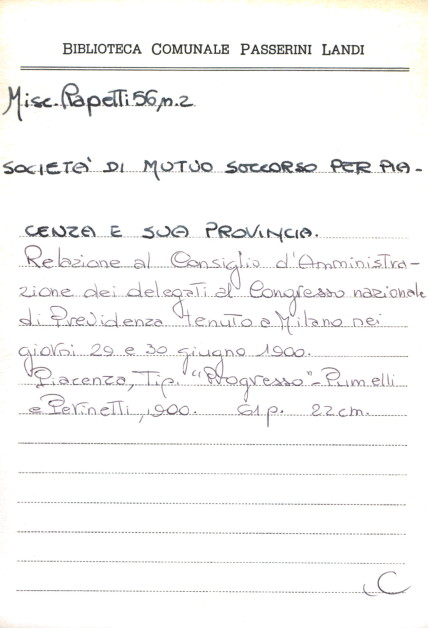 BIBLIOTECA COMUNALE PASSERINI LANDI
Misc. Rapetti 56, n. 2
SOCIETA' DI MUTUO SOCCORSO PER PIA-
CENZA E SUA PROVINCIA.
Relazione al Consiglio d'Amministra-
zione dei delegati al Congresso nazionale
di Previdenza tenuto a Milano nei
giorni 29 e 30 giugno 1900.
Piacenza, Tip. "Progresso" - Pumelli
e Perinetti, 1900. 61 p. 22 cm.
C